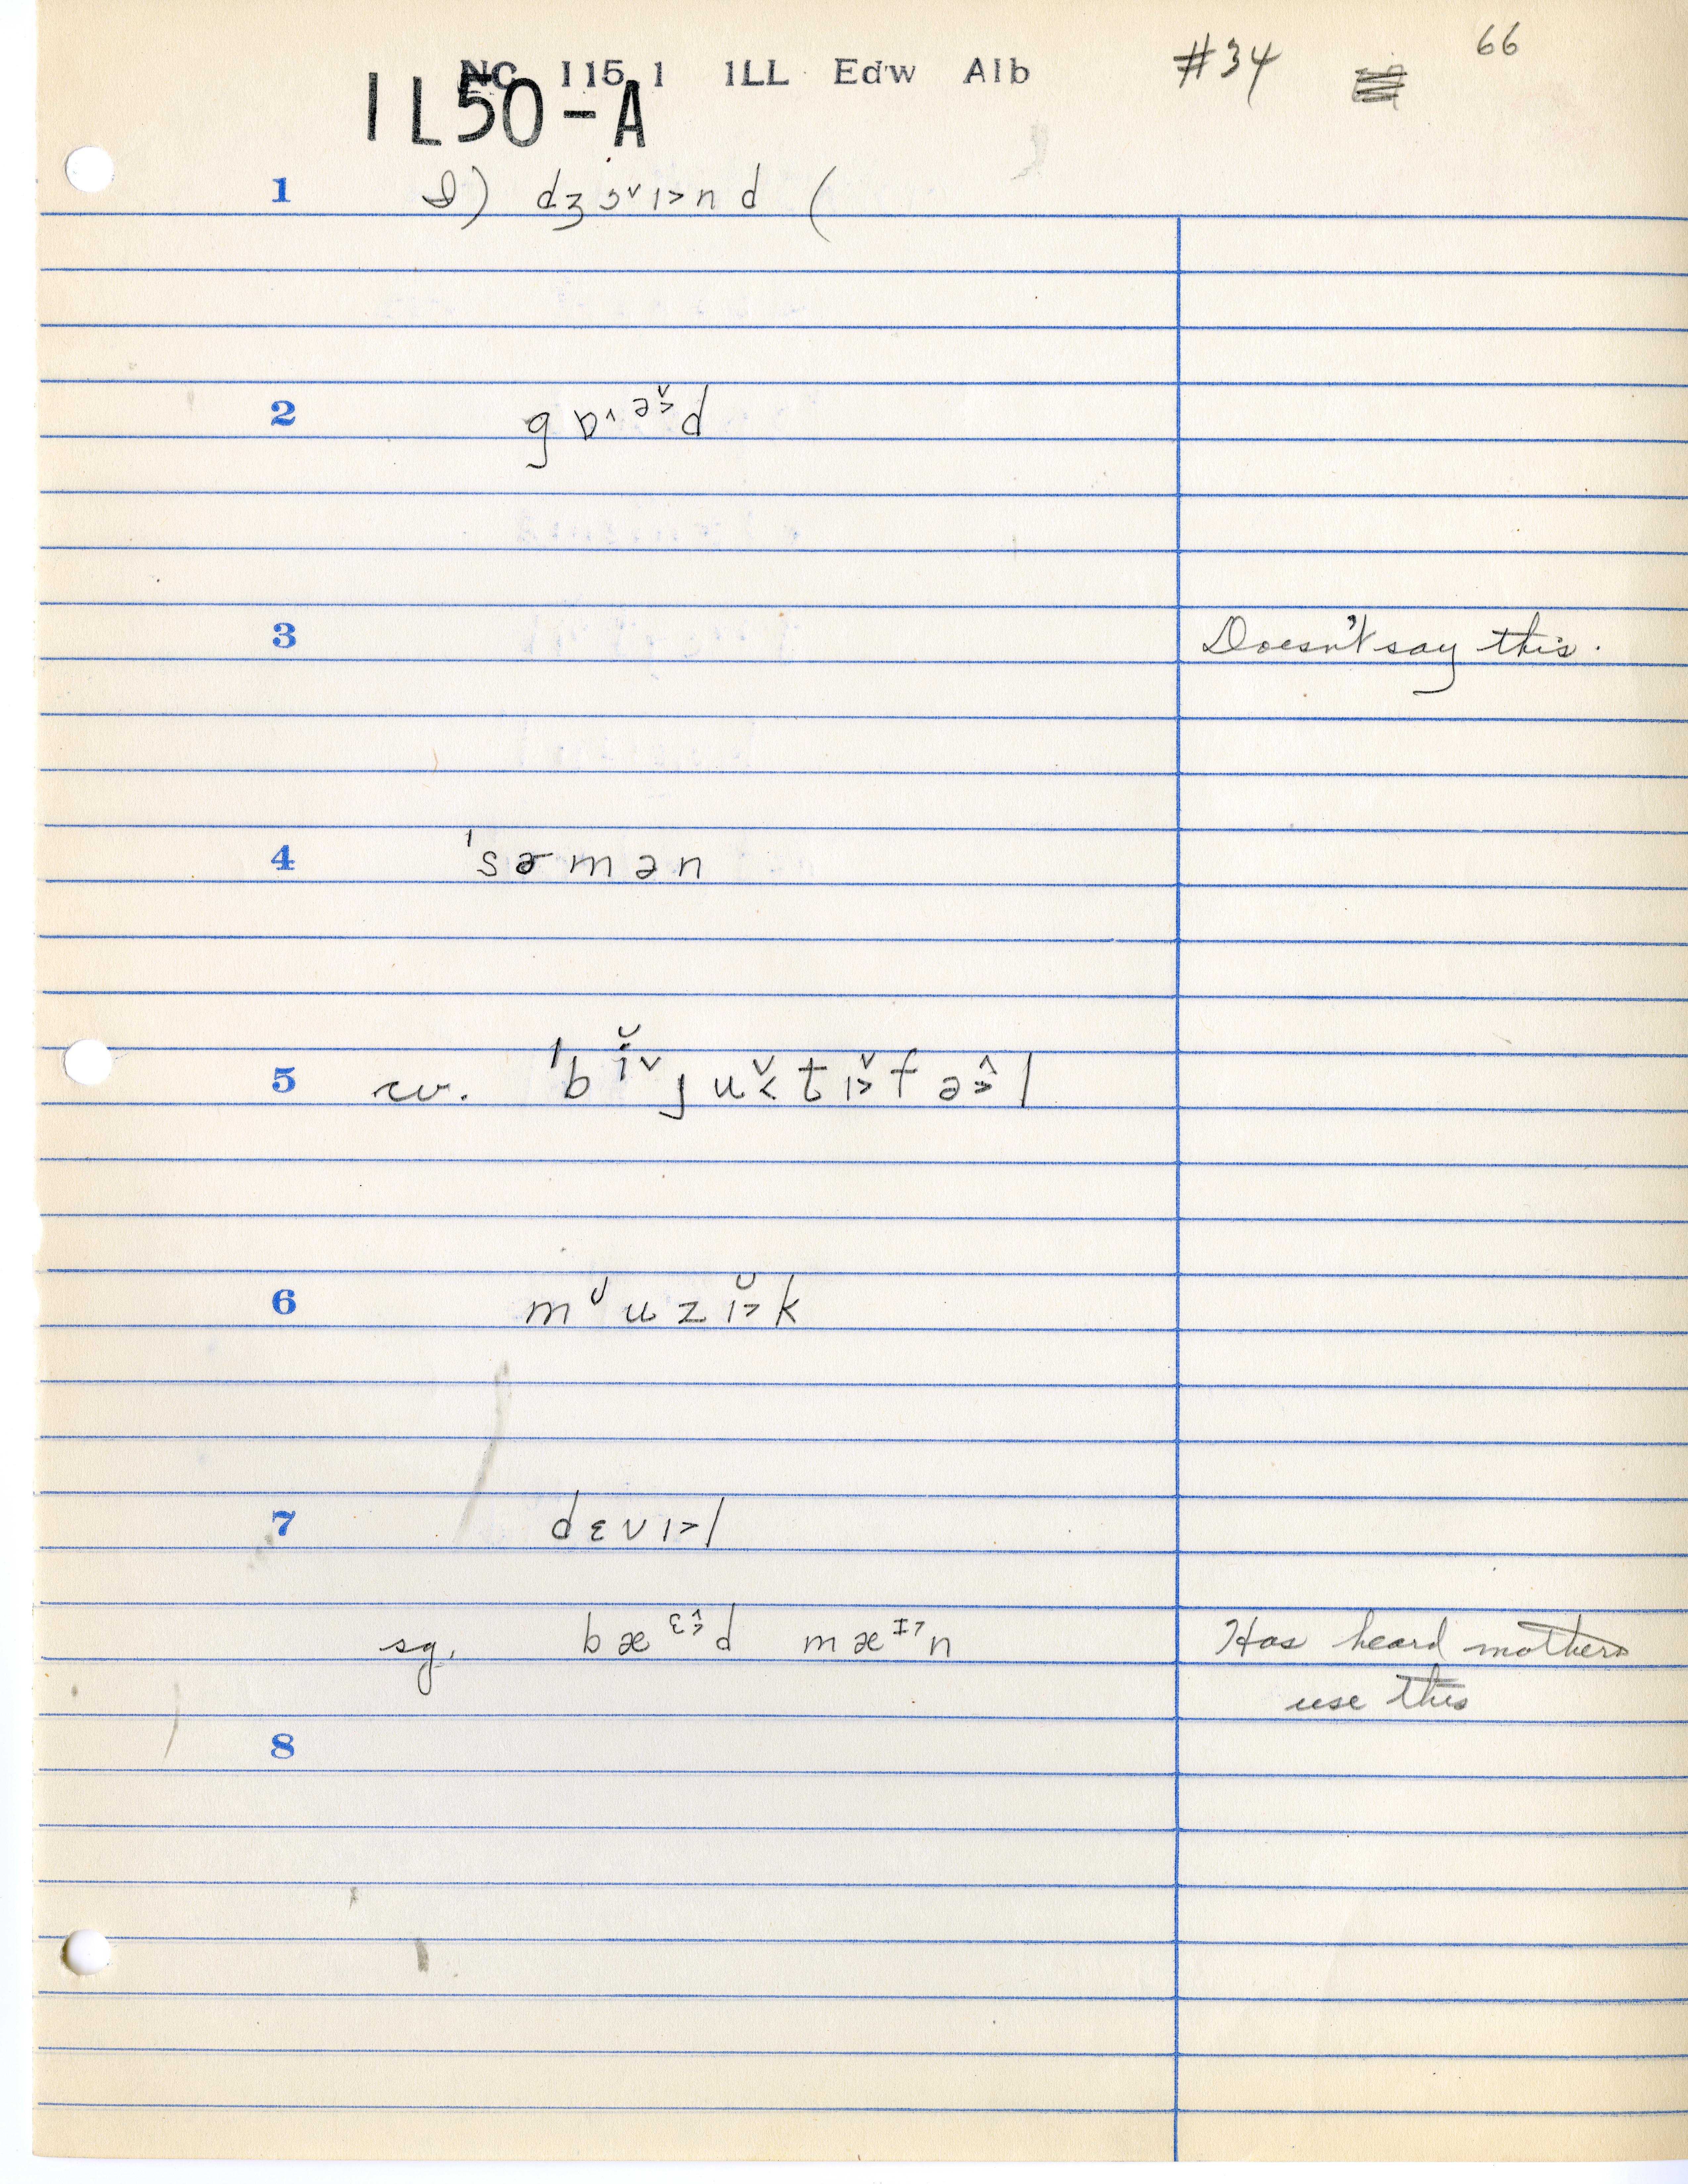 NC 115.1 ILL Edw Alb #34 66
IL50-A
1 d) dʒɔ˅ɪ˃nd (
2 gɒ˄ə̆˃d
3 Doesn't say this.
4 'sɚmən
5 cv. 'bĭ˅ju̬˂tɪ̬˃fə̭˃l
6 mᶸuzĭ˃k
7 dɛvɪ˃l
sg. bæᵋ˃d mæᶦ˃n Has heard mothers
use this
8